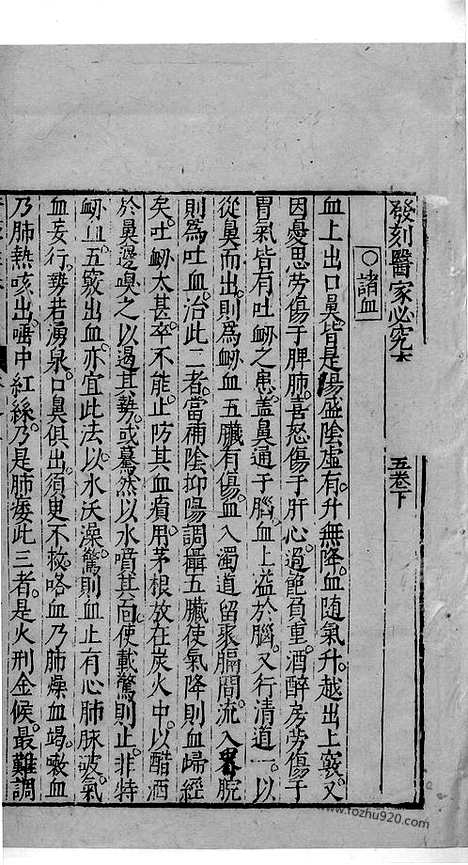 發刻醫家必究本　五卷下
○諸血
血上出口鼻皆是陽盛陰虛有升無降血隨氣升越出上竅又
因憂思勞傷于脾肺喜怒傷于肝心過飽負重酒醉房勞傷于
胃氣皆有吐衂之患蓋鼻通于腦血上溢於腦又行清道一以
從鼻而出則爲衂血五臟有傷血入濁道留聚膈間流入胃脘
則爲吐血治此二者當補陰抑陽調攝五臟使氣降則血歸經
矣吐衂太甚卒不能止防其血㿉用茅根放在炭火中以醋洒
於鼻邊嗅之以遏其勢或驀然以水噴其面使載驚則止非特
衂血五竅出血亦宜此法以水沃澡驚則血止有心肺脉破氣
血妄行勢若湧泉口鼻俱出須更不捄咯血乃肺燥血竭嗽血
乃肺熱咳出唾中紅絲乃是肺痿此三者是火刑金候最難調
www.tozhu920.com